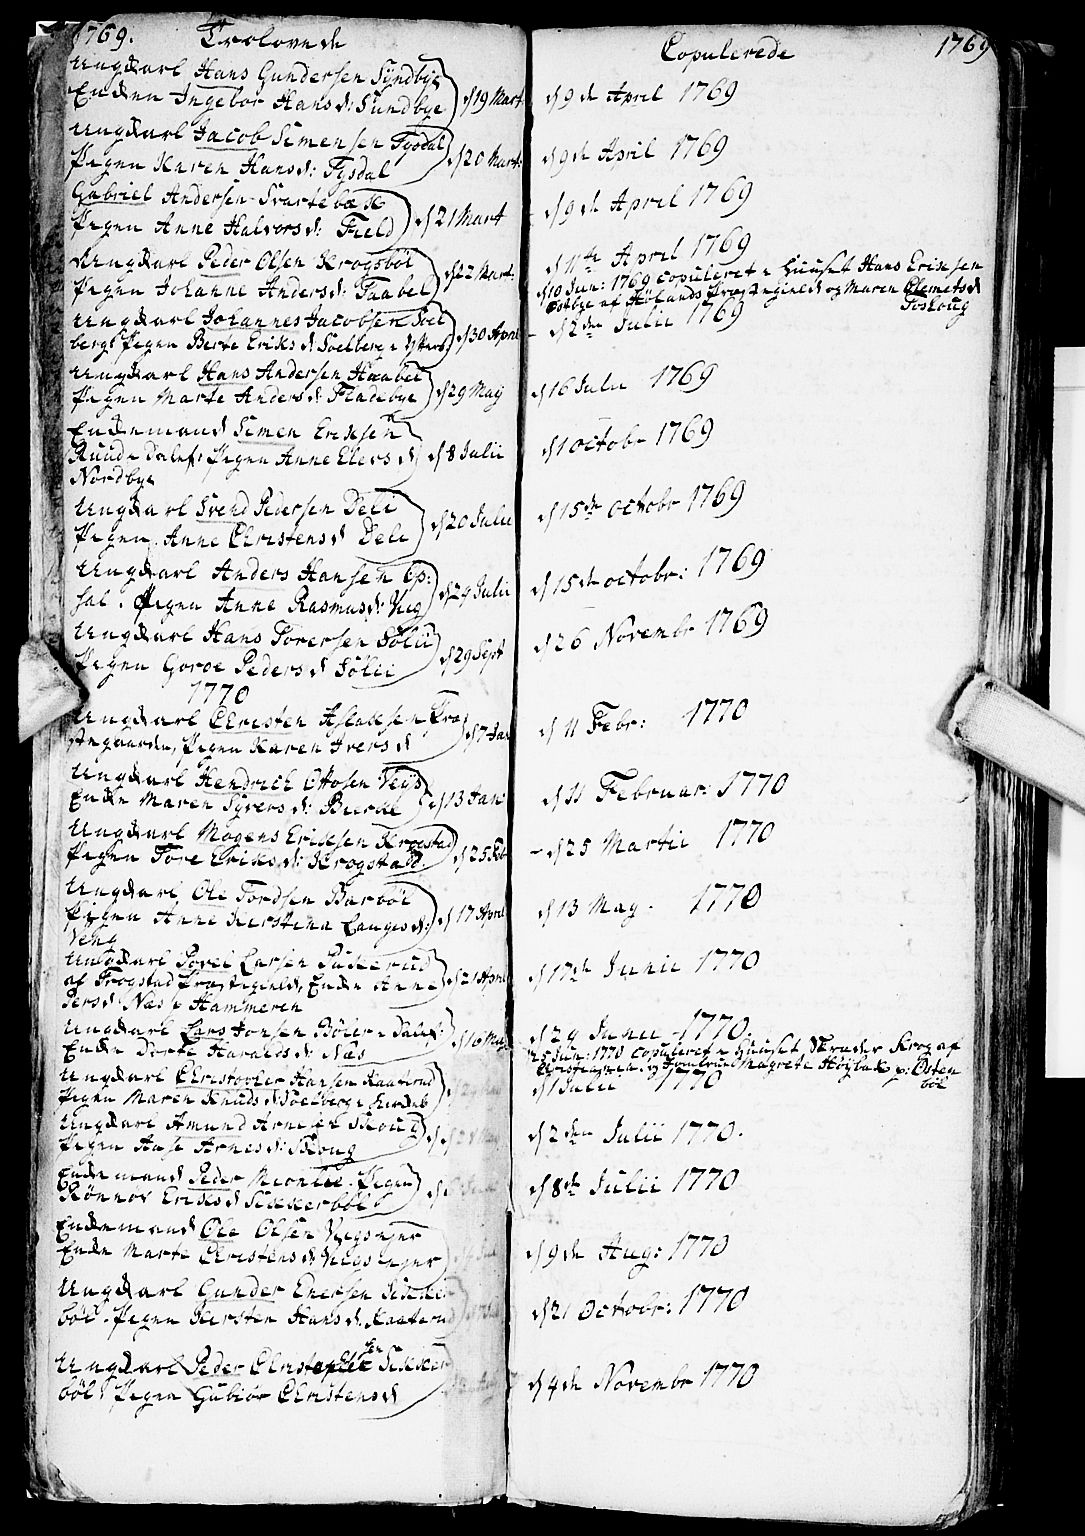 1769. Trolovede
Ungkarl Hans Gundersen Sÿndbÿe
Enken Ingebor Hans d: Sundbye } d 19 Mart
Ungkarl Jacob Simensen Tysdal
Pigen Karen Hans d: Tysdal } d 20 Mart:
Gabriel Andersen Svartebæk
Pigen Anne Halvors d: Field } d 21 Mart
Ungkarl Peder Olsen Krogsböl
Pigen Johanne Anders d: Taabel } d 22 Mart.
Ungkarl Johannes Jacobsen Soel
berg. Pigen Berte Eriks d Soelberg i } d 30 April
Ungkarl Hans Andersen Haabel
Pigen Marte Anders d Fladebye } d 29 May
Enkemand Simen Eriksen
Ruud i Dalef: Pigen Anne Elevs d } d 8 Julii
Nordbye
Ungkarl Svend Pedersen Deli
Pigen Anne Christens d Deli } d 20 Julii
Ungkarl Anders Hansen Op:
sal. Pigen Anne Rasmus d: Vieg } d 29 Julii
Ungkarl Hans Torersen Sölii
Pigen Goroe Peders d Sölii } d 29 Sept
1770
Ungkarl Christen Aslaksen Præ
stegaarden, Pigen Karen Ivers d } d 7 Jan
Ungkarl Hendrich Ottosen Veÿs
Enke Maren Syvers d: Bierke } d 13 Jan
Ungkarl Mogens Eriksen Krogstad
Pigen Tore Eriks d: Krogstad. } d 25 Feb
Ungkarl Ole Tordsen Barböl
Pigen Anne Kierstina Lauges d: } d 17 April
Veng
Ungkarl Povel Larsen Puskerud
af Trogstad Præstegield, Enke Anne } d 21 April
Pers d Næs i Hammeren
Ungkarl Lars Jonsen Böler i Dalef:
Enke Dorte Haralds d: Næs } d 16 May
Ungkarl Christopher Hansen Kaaterud
Pigen Maren Knuds d Soelberg i
Ungkarl Amund Arnesen Skoug
Pigen Aase Arnes d: Skoug
Enkemand Peder Pigen
Rönnov Eriks d Sikkerböl
Enkemand Ole Olsen Vegsnser
Enke Marte Christens d Vegsnser
Ungkarl Gunder Enersen Sikker
böl. Pigen Kiersten Hans d: Kaaterud
Ungkarl Peder Christophersen Sikker
böl Pigen Gubiör Christens d
Copulerede 1769
d 9 de April 1769
d 9 de April 1769
d 9 de April 1769
d 11 te April 1769
d 10 Jun: 1769 copuleret i Huuset Hans Eriksen
Östbye af Hölands Præstegield og Maren Clemets d
Toskoug
d 2 den Julii 1769
d 16 Julii 1769
d 1 octobr 1769
d 15 de octobr 1769
d 15 de octobr: 1769
d 26 Novembr 1769
d 11 Febr: 1770
d 11 Februar: 1770
d 25 Martii 1770
d 13 May. 1770
d 17 de Junii 1770
d 29 Junii 1770.
25 Jun: 1770 copuleret i Huuset Krog af
Christiania og Magrete Höybak p: Östen
böl
d 1 Julii 1770
d 2 den Julii 1770.
d 8 de Julii 1770
d 9 de Aug: 1770
d 21 Octobr: 1770
d 4 de Novembr 1770